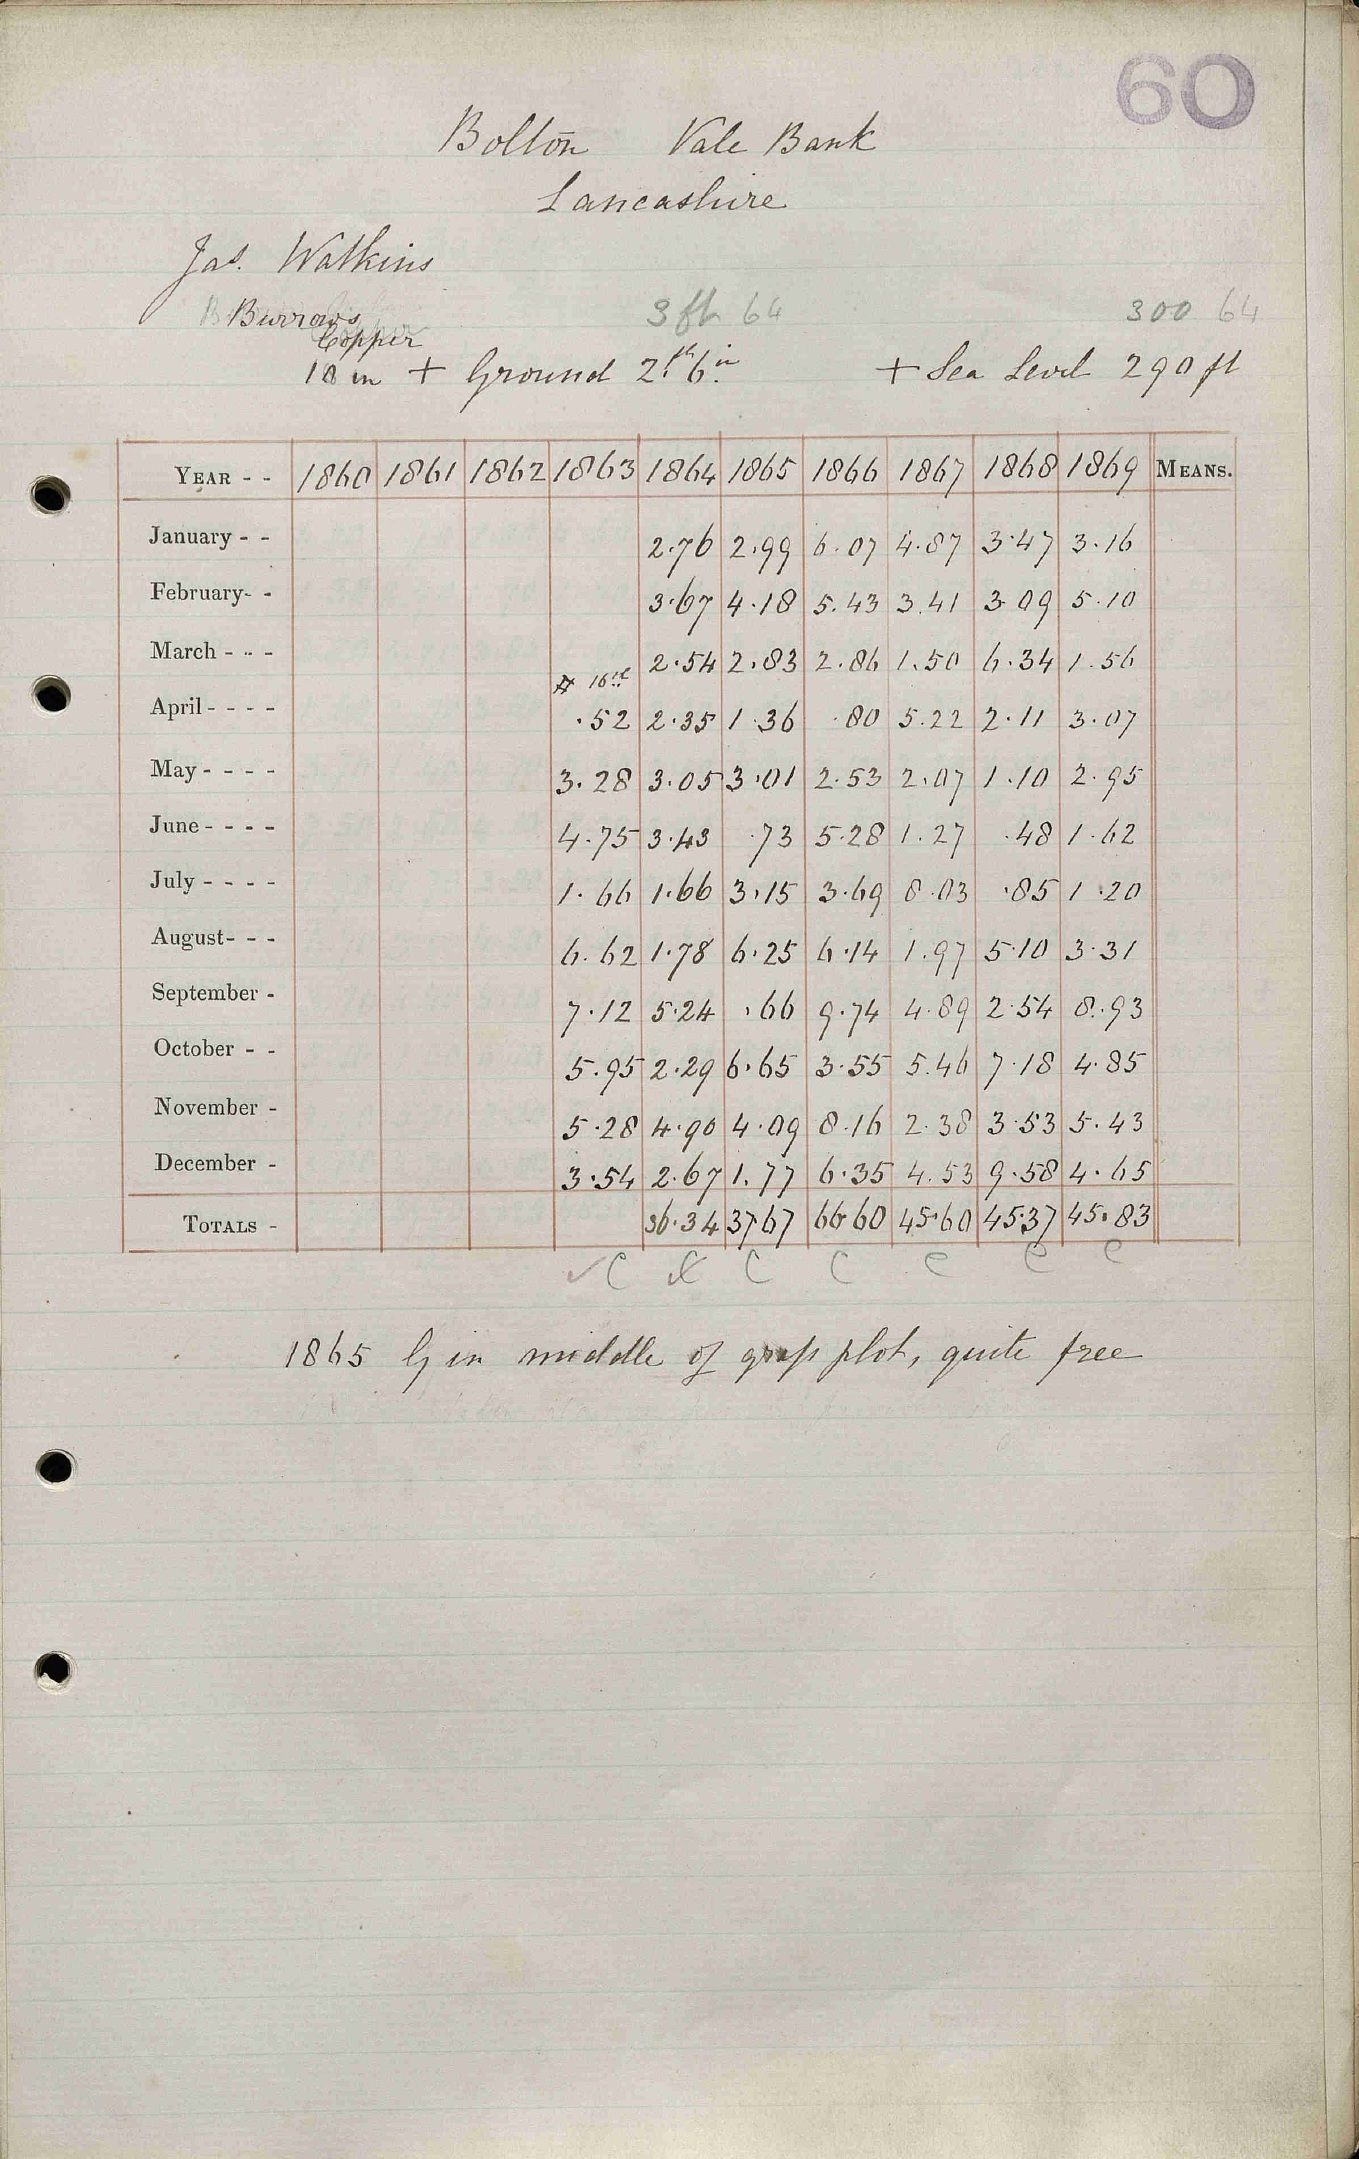 60
Bolton Vale Bank
Lancashire
Jas. Watkins
Burrows
Copper
3 ft 64 300 64
10 in + Ground 2ft 6in + Sea Level 290 ft
YEAR - - 1860 1861 1862 1863 1864 1865 1866 1867 1868 1869 MEANS.
January - - 2.76 2.99 6.07 4.87 3.47 3.16
February- - 3.67 4.18 5.43 3.41 3.09 5.10
March - - - 2.54 2.83 2.86 1.50 6.34 1.56
16th
April - - - - .52 2.35 1.36 .80 5.22 2.11 3.07
May - - - - 3.28 3.05 3.01 2.53 2.07 1.10 2.95
June - - - - 4.75 3.43 .73 5.28 1.27 .48 1.62
July - - - - 1.66 1.66 3.15 3.69 8.03 .85 1.20
August- - - 6.62 1.78 6.25 6.14 1.97 5.10 3.31
September - 7.12 5.24 .66 9.74 4.89 2.54 8.93
October - - 5.95 2.29 6.65 3.55 5.46 7.18 4.85
November - 5.28 4.90 4.09 8.16 2.38 3.53 5.43
December - 3.54 2.67 1.77 6.35 4.53 9.58 4.65
TOTALS - 36.34 37.67 66.60 45.60 45.37 45.83
✓C C C C C C C
1865 G in middle of grass plot, quite free